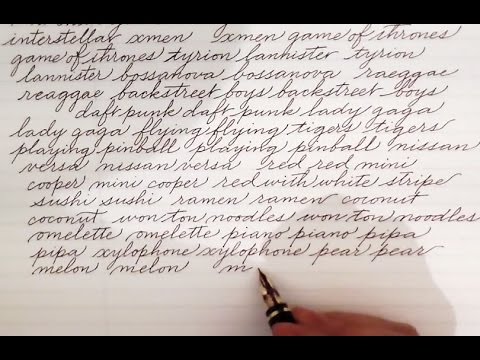 interstellar xmen xmen game of thrones
game of thrones tyrion lannister tyrion
lannister bossanova bossanova raeggae
reaggae backstreet boys backstreet boys
daft punk daft punk lady gaga
lady gaga flying flying tigers tigers
playing pinball playing pinball nissan
versa nissan versa red red mini
cooper mini cooper red with white stripe
sushi sushi ramen ramen coconut
coconut won ton noodles won ton noodles
omelette omelette piano piano pipa
pipa xylophone xylophone pear pear
melon melon m